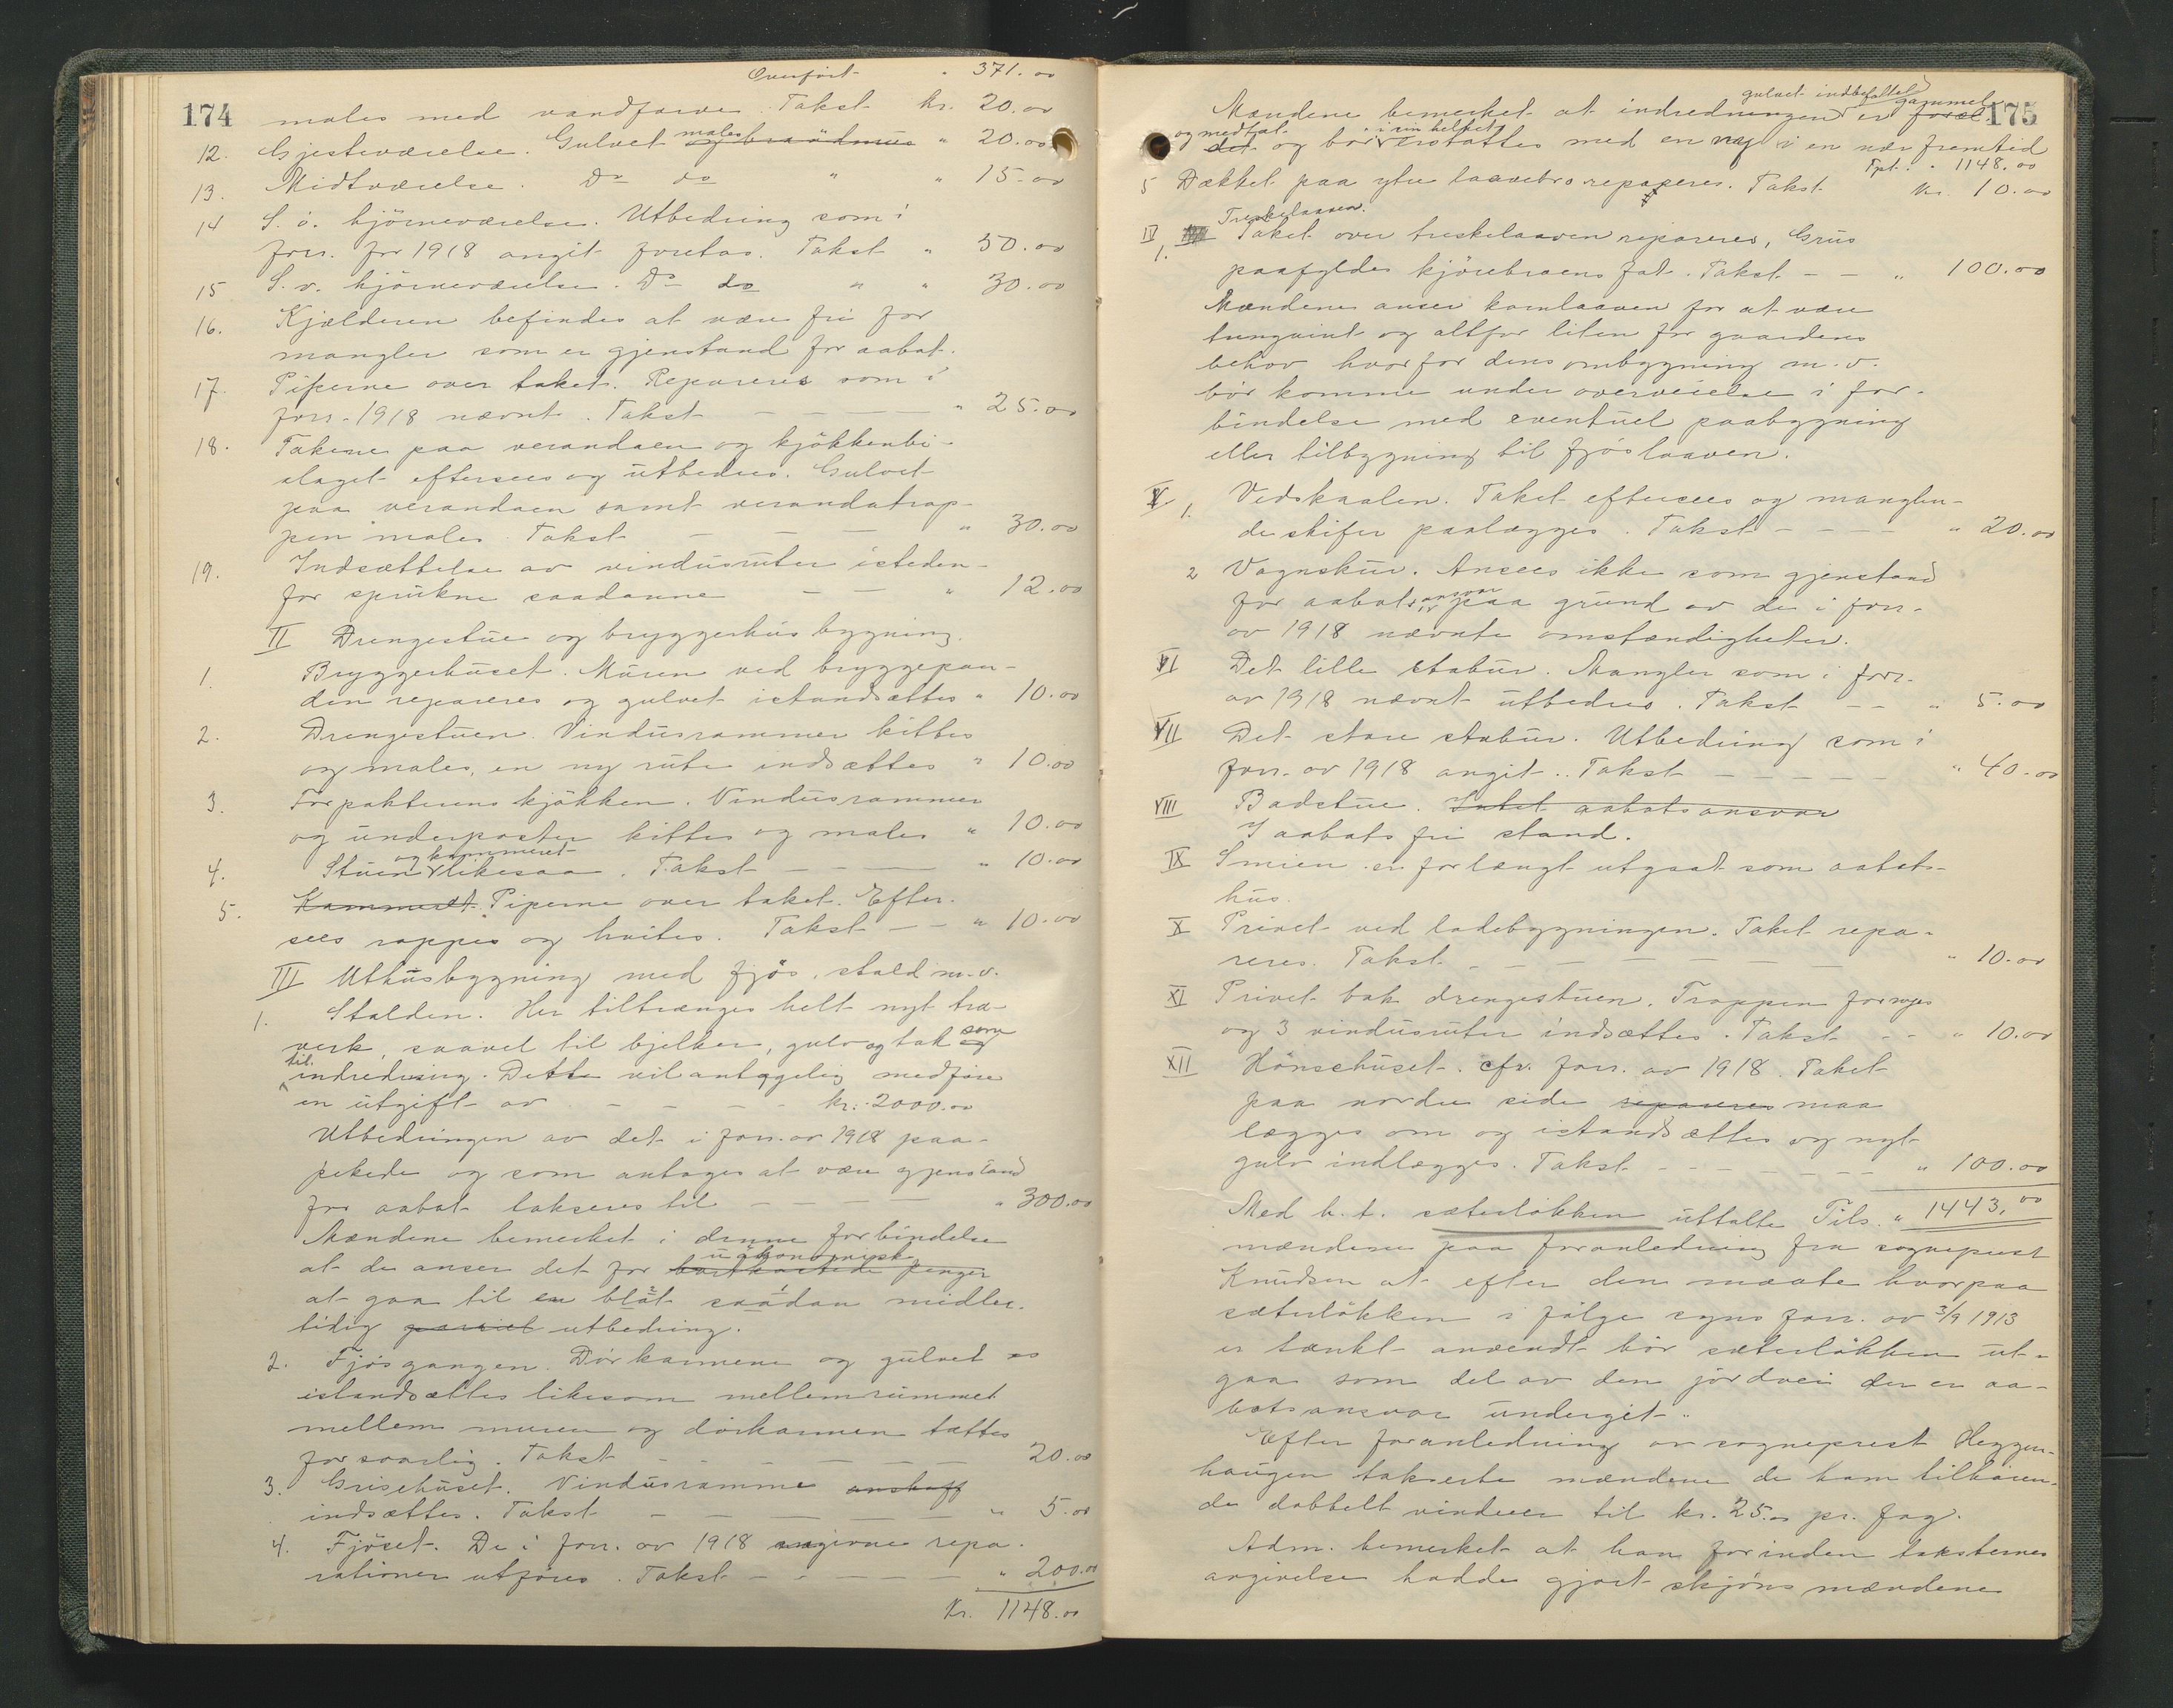 174
Overført " 371.00
males med vandfarve. Takst kr. 20.00
12. Gjesteværelse. Gulvet males og brandmur " 20.00
13. Midtværelse. Do do " " 15.00
14 S. ö. hjörneværelse. Utbedring som i
forr. for 1918 angit foretas. Takst " 50.00
15 S. v. hjörneværelse. Do do " " 30.00
16. Kjælderen befindes at være fri for
mangler som er gjenstand for aabot.
17. Piperne over taket. Repareres som i
forr. 1918 nævnt. Takst — — — " 25.00
18. Takene paa verandaen og kjökkenbi-
slaget eftersees og utbedres. Gulvet
paa verandaen samt verandatrap-
pen males. Takst — — — " 30.00
19. Indsættelse av vindusruter isteden-
for sprukne saadanne — — " 12.00
II Drengestue og bryggerhusbygning.
1. Bryggerhuset. Muren ved bryggepan-
den repareres og gulvet istandsættes " 10.00
2. Drengestuen. Vindusrammer kittes
og males, en ny rute indsættes " 10.00
3. Forpakterens kjökken. Vindusrammer
og underposter kittes og males " 10.00
4. Stuen og kammeret likesaa. Takst — — — " 10.00
5. Kammeret. Piperne over taket. Efter-
sees rappes og hvites. Takst — — " 10.00
III Uthusbygning med fjös, stald m.v.
1. Stalden. Her tiltrænges helt nyt træ-
verk, saavel til bjelker, gulv og tak og som
til indredning. Dette vil antagelig medføre
en utgift av — — — — kr. 2000.00
Utbedringen av det i forr. av 1918 paa-
pekede og som antages at være gjenstand
for aabot takseres til — — — — " 300.00
Mændene bemerket i denne forbindelse
at de anser det for bortkastede penger uökonomisk
at gaa til en blöt saadan midler-
tidig partiel utbedring.
2. Fjösgangen. Dörkarmene og gulvet
istandsættes likesom mellemrummet
mellem muren og dörkarmen tættes
forsvarlig. Takst — — — — — 20.00
3. Grisehuset. Vindusramme anskaff
indsættes. Takst — — — — — " 5.00
4. Fjöset. De i forr. av 1918 angivne repa-
rationer utføres. Takst — — — — " 200.00
Kr. 1148.00
175
Mændene bemerket at indredningen gulvet indbefattet er foræl gammel
og medtat det og bör i sin helhet erstattes med en ny i en nær fremtid
Tpt. " 1148.00
5 Dækket paa ytre laavebro repareres. Takst kr. 10.00
IV Treskelaaven.
1. Taket over treskelaaven repareres, Grus
paafyldes kjörebroens fot. Takst — — " 100.00
Mændene anser kornlaaven for at være
tungvint og altfor liten for gaardens
behov hvorfor dens ombygning m.v.
bör komme under overveielse i for-
bindelse med eventuel paabygning
eller tilbygning til fjöslaaven.
V 1. Vedskaalen. Taket eftersees og manglen-
de skifer paalægges. Takst — — — " 20.00
2 Vognskur. Ansees ikke som gjenstand
for aabotsansvar paa grund av de i forr.
av 1918 nævnte omstændigheter.
VI Det lille stabur. Mangler som i forr.
av 1918 nævnt utbedres. Takst — — " 5.00
VII Det store stabur. Utbedring som i
forr. av 1918 angit. Takst — — — — " 40.00
VIII Badstue. Intet aabotsansvar
I aabotsfri stand.
IX Smien er forlængst utgaat som aabots-
hus.
X Privet ved ladebygningen. Taket repa-
reres. Takst — — — — — — " 10.00
XI Privet bak drengestuen. Trappen fornyes
og 3 vindusruter indsættes. Takst — — " 10.00
XII Hönsehuset. cfr. forr. av 1918. Taket
paa nordre side repareres maa
lægges om og istandsættes og nyt
gulv indlægges. Takst — — — — — " 100.00
Med h. t. sæterlökken uttalte Tils. " 1443,00
mændene paa foranledning fra sogneprest
Knudsen at efter den maate hvorpaa
sæterlökken i følge syns forr. av 3/9 1913
er tænkt anvendt bör sæterlökken ut-
gaa som del av den jordvei der er aa-
botsansvar undergit.
Efter foranledning av sogneprest Heggen-
haugen takserte mændene de ham tilhören-
de dobbelt vinduer til kr. 25.00 pr. fag.
Adm. bemerket at han forinden taksternes
angivelse hadde gjort skjönsmændene